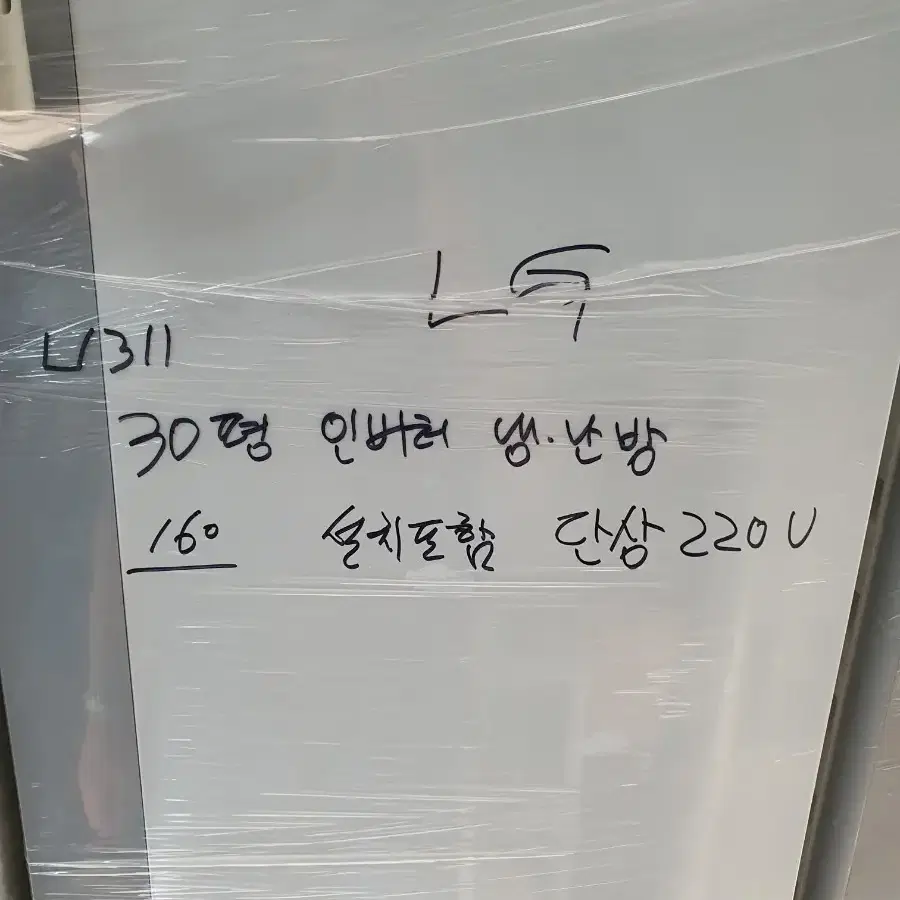 LG
U311
30평 인버터 냉·난방
160 설치포함 단상 220V